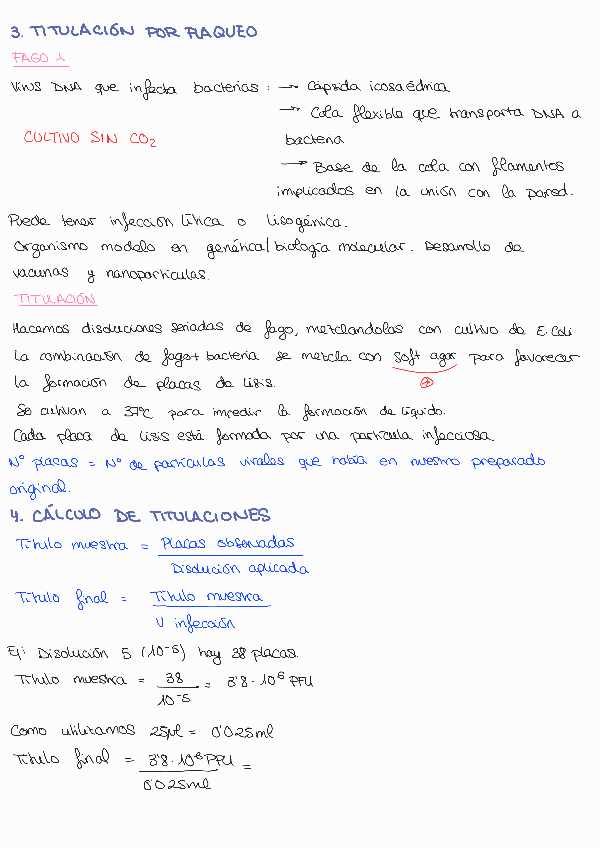 3. TITULACIÓN POR PLAQUEO
FAGO λ
Virus DNA que infecta bacterias: → Cápsida icosaédrica
→ Cola flexible que transporta DNA a
CULTIVO SIN CO2
bacteria
→ Base de la cola con filamentos
implicados en la unión con la pared.
Puede tener infección lítica o lisogénica.
Organismo modelo en genética/biología molecular. Desarrollo de
vacunas y nanopartículas.
TITULACIÓN
Hacemos disoluciones seriadas de fago, mezclandolas con cultivo de E. Coli
La combinación de fago + bacteria se mezcla con soft agar para favorecer
la formación de placas de lisis.
Se cultivan a 37ºC para impedir la formación de líquido.
Cada placa de lisis está formada por una partícula infecciosa.
Nº placas = Nº de partículas virales que había en nuestro preparado
original.
4. CÁLCULO DE TITULACIONES
Título muestra = Placas observadas
Disolución aplicada
Título final = Título muestra
V infección
Ej: Disolución 5 (10⁻⁵) hay 38 placas.
Título muestra = 38 = 3'8 · 10⁶ PFU
10⁻⁵
Como utilizamos 25µl = 0'025ml
Título final = 3'8 · 10⁶ PFU =
0'025ml